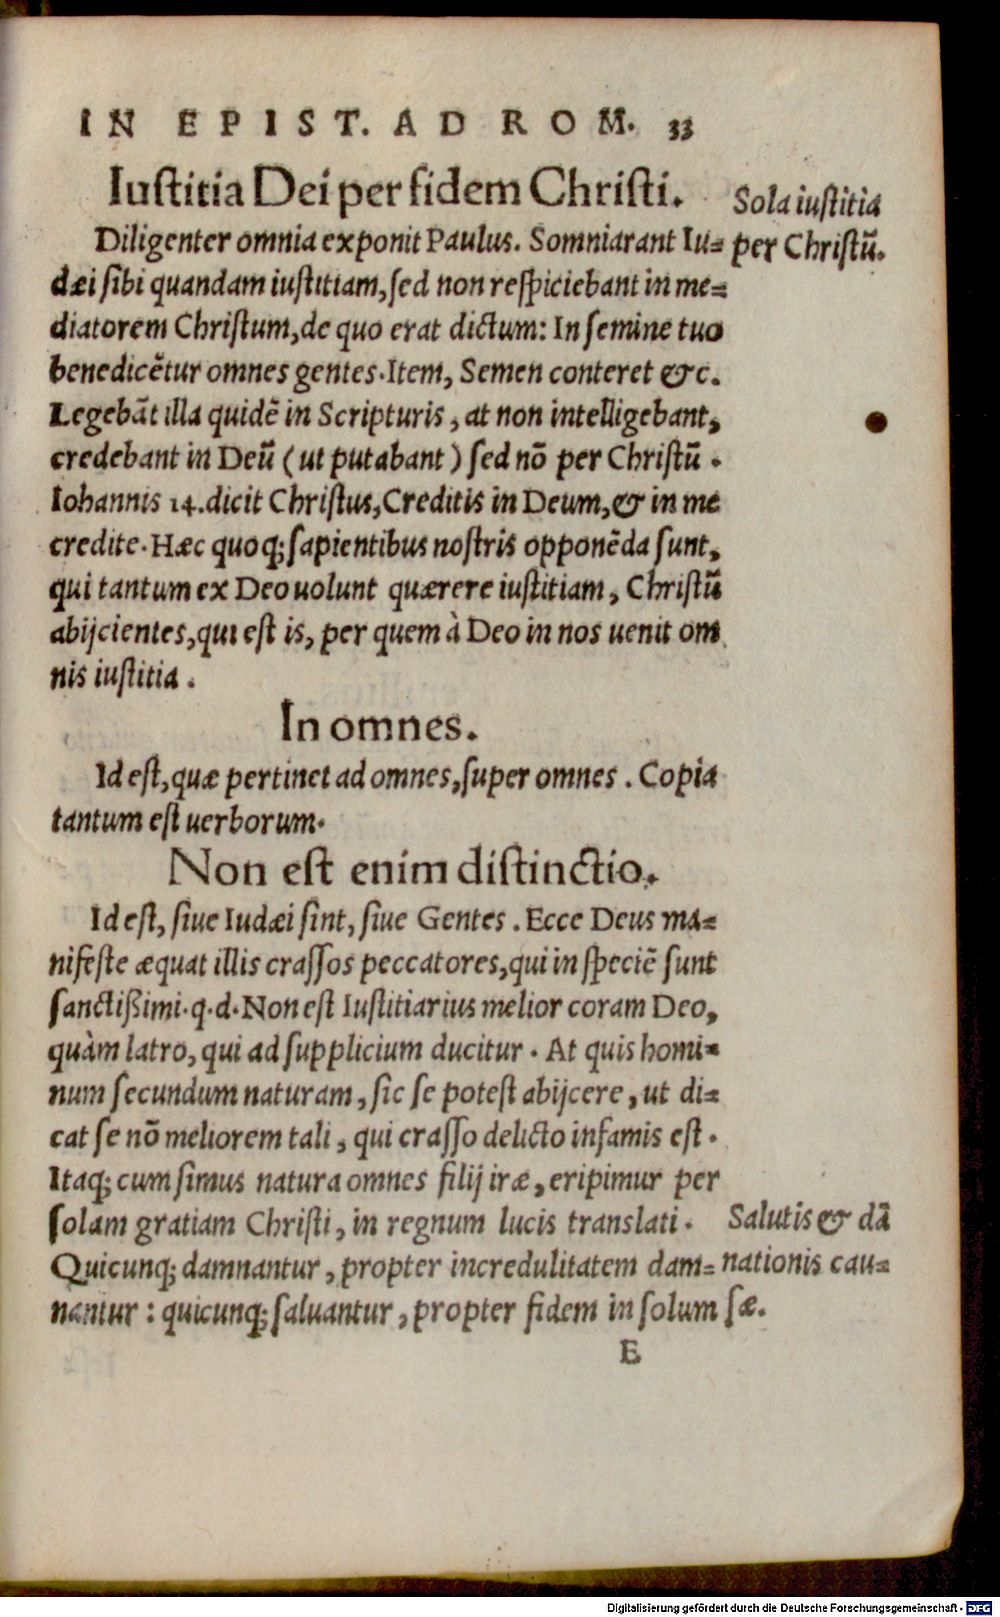 IN EPIST. AD ROM. 33
Iustitia Dei per fidem Christi.
Sola iustitia
per Christū.
Diligenter omnia exponit Paulus. Somniarant Iu=
dæi sibi quandam iustitiam, sed non respiciebant in me=
diatorem Christum, de quo erat dictum: In semine tuo
benedicētur omnes gentes. Item, Semen conteret &c.
Legebāt illa quidē in Scripturis, at non intelligebant,
credebant in Deū (ut putabant) sed nō per Christū.
Iohannis 14. dicit Christus, Creditis in Deum, & in me
credite. Hæc quoq; sapientibus nostris opponēda sunt,
qui tantum ex Deo uolunt quærere iustitiam, Christū
abijcientes, qui est is, per quem à Deo in nos uenit om
nis iustitia.
In omnes.
Id est, quæ pertinet ad omnes, super omnes. Copia
tantum est uerborum.
Non est enim distinctio.
Id est, siue Iudæi sint, siue Gentes. Ecce Deus ma=
nifeste æquat illis crassos peccatores, qui in speciē sunt
sanctißimi. q. d. Non est Iustitiarius melior coram Deo,
quàm latro, qui ad supplicium ducitur. At quis homi=
num secundum naturam, sic se potest abijcere, ut di=
cat se nō meliorem tali, qui crasso delicto infamis est.
Itaq; cum simus natura omnes filij iræ, eripimur per
solam gratiam Christi, in regnum lucis translati.
Quicunq; damnantur, propter incredulitatem dam=
nantur: quicunq; saluantur, propter fidem in solum
Salutis & dā
nationis cau=
sæ.
E
Digitalisierung gefördert durch die Deutsche Forschungsgemeinschaft - DFG